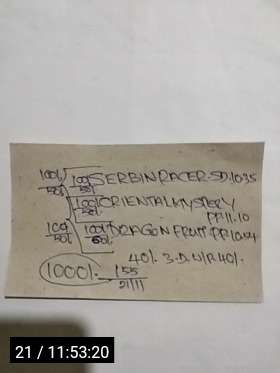 100/. 100/. SERBIN RACER-SD.10.35
50/. 50/.
100/. ORIENTAL MYSTERY
50/. PP.11.10
100/. 100/. DRAGON FRUIT PP.10.04
50/. 60/.
40/. 3.D.U/R 40/.
1000/. 155
21/11
21 / 11:53:20